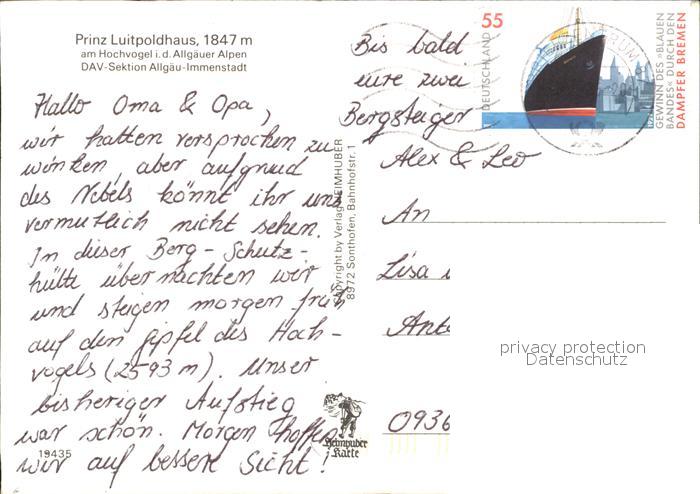 Prinz Luitpoldhaus, 1847 m
am Hochvogel i.d. Allgäuer Alpen
DAV-Sektion Allgäu-Immenstadt
Hallo Oma & Opa,
wir hatten versprochen zu
winken, aber aufgrund
des Nebels könnt ihr uns
vermutlich nicht sehen.
In dieser Berg-Schutz-
hütte übernachten wir
und steigen morgen früh
auf den Gipfel des Hoch-
vogels (2593 m). Unser
bisheriger Aufstieg
war schön. Morgen hoffen
wir auf bessere Sicht!
19435
Copyright by Verlag HEIMHUBER
8972 Sonthofen, Bahnhofstr. 1
Heimhuber
Karte
Bis bald
eure zwei
Bergsteiger
Alex & Leo
55
DEUTSCHLAND
GEWINN DES »BLAUEN
BANDES« DURCH DEN
DAMPFER BREMEN
An
Lisa
0936
privacy protection
Datenschutz